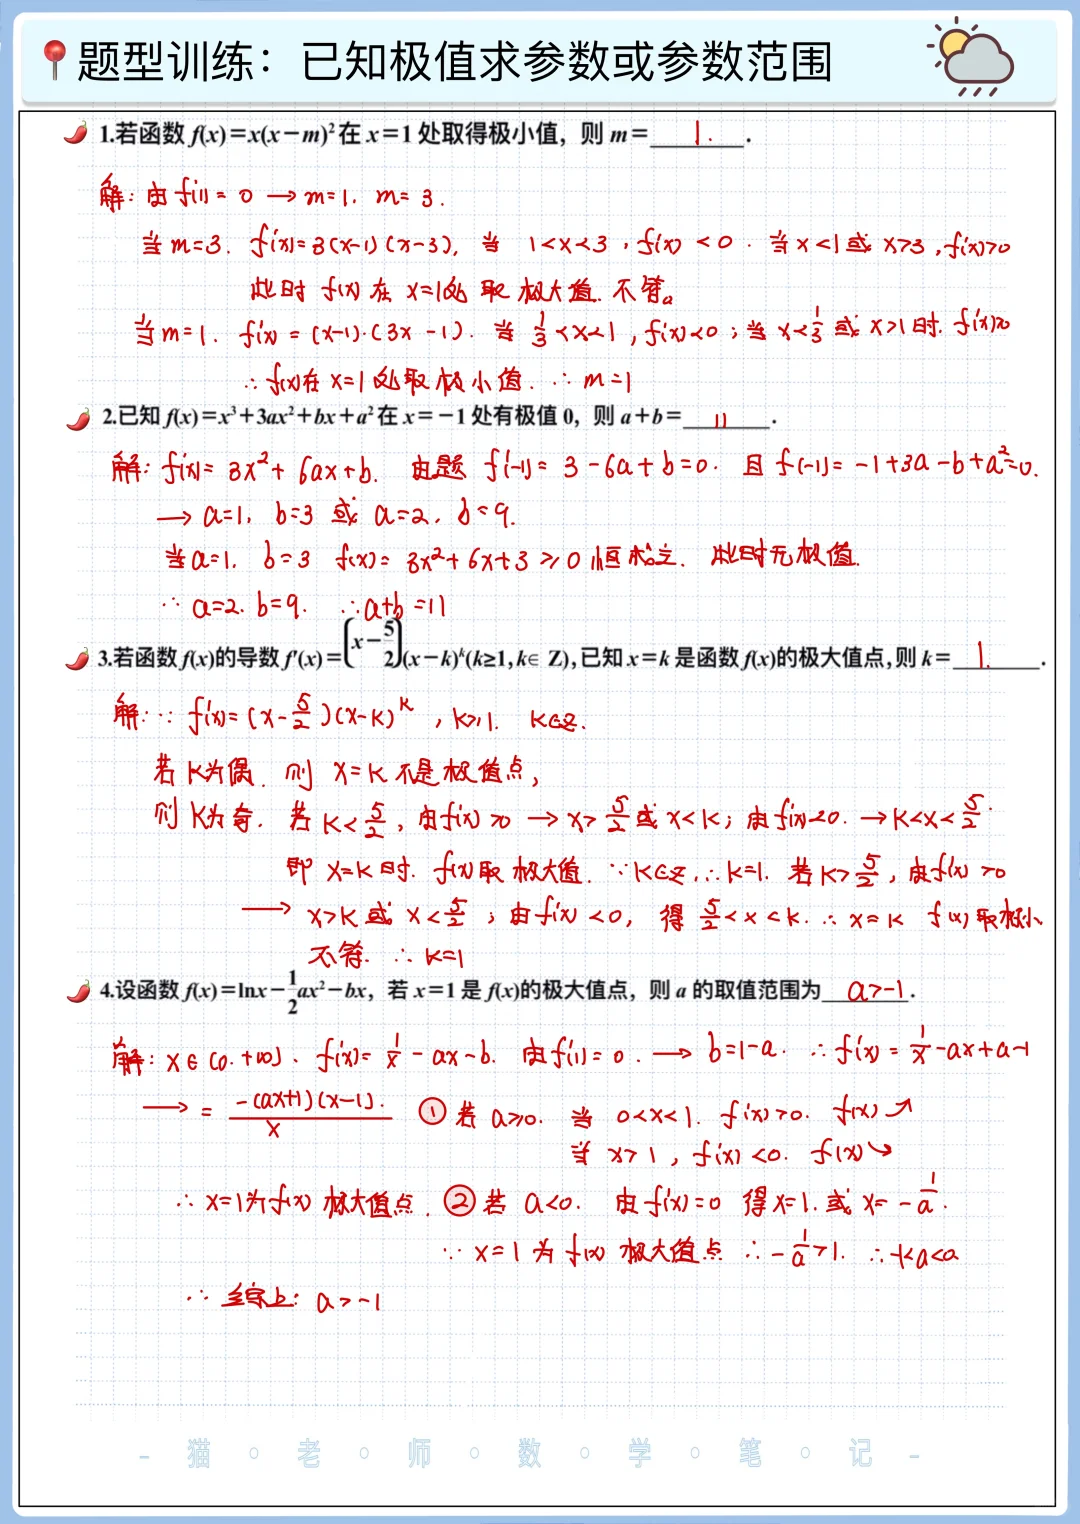 题型训练：已知极值求参数或参数范围
1.若函数 f(x)=x(x-m)²在 x=1 处取得极小值，则 m=  1.  .
解：由 f'(1)= 0 → m=1, m= 3.
当 m=3. f'(x)=3(x-1)(x-3), 当 1<x<3, f'(x)<0. 当 x<1或 x>3, f'(x)>0
此时 f(x) 在 x=1处 取 极大值. 不符。
当 m=1. f'(x) = (x-1)·(3x-1). 当 1/3<x<1, f'(x)<0; 当 x<1/3 或 x>1时. f'(x)>0
∴ f(x)在 x=1处取极小值. ∴ m=1
2.已知 f(x)=x³+3ax²+bx+a²在 x=-1 处有极值 0，则 a+b=  11  .
解: f'(x)= 3x²+6ax+b. 由题 f'(-1)= 3-6a+b=0. 且 f(-1)= -1+3a-b+a²=0.
→ a=1, b=3 或 a=2, b=9.
当 a=1, b=3 f'(x)= 3x²+6x+3≥0 恒成立. 此时无极值.
∴ a=2. b=9. ∴a+b=11
3.若函数 f(x)的导数 f′(x)=(x-5/2)(x-k)ᵏ(k≥1,k∈ Z),已知 x=k 是函数 f(x)的极大值点,则 k=  1.  .
解: ∵ f'(x)=(x-5/2)(x-k)ᵏ, k≥1. k∈Z.
若 k为偶. 则 x=k 不是极值点,
则 k为奇. 若 k<5/2, 由f'(x)>0 → x>5/2 或 x<k; 由f'(x)<0. → k<x<5/2.
即 x=k 时. f(x)取 极大值. ∵k∈Z,∴k=1. 若k>5/2, 由f'(x)>0
→ x>k 或 x<5/2; 由f'(x)<0, 得 5/2<x<k. ∴ x=k f(x)取极小
不符. ∴ k=1
4.设函数 f(x)=lnx-1/2ax²-bx，若 x=1 是 f(x)的极大值点，则 a 的取值范围为  a>-1  .
解: x∈(0,+∞). f'(x)=1/x-ax-b. 由f'(1)=0. → b=1-a. ∴ f'(x)=1/x-ax+a-1
→ = -(ax+1)(x-1)./x ① 若 a≥0. 当 0<x<1. f'(x)>0. f(x)↗
当 x>1, f'(x)<0. f(x)↘
∴ x=1为f(x) 极大值点. ② 若 a<0. 由f'(x)=0 得 x=1. 或 x= -1/a.
∵ x=1 为 f(x) 极大值点 ∴ -1/a>1. ∴ -1<a<0
∴ 综上: a>-1
- 猫 · 老 · 师 · 数 · 学 · 笔 · 记 -